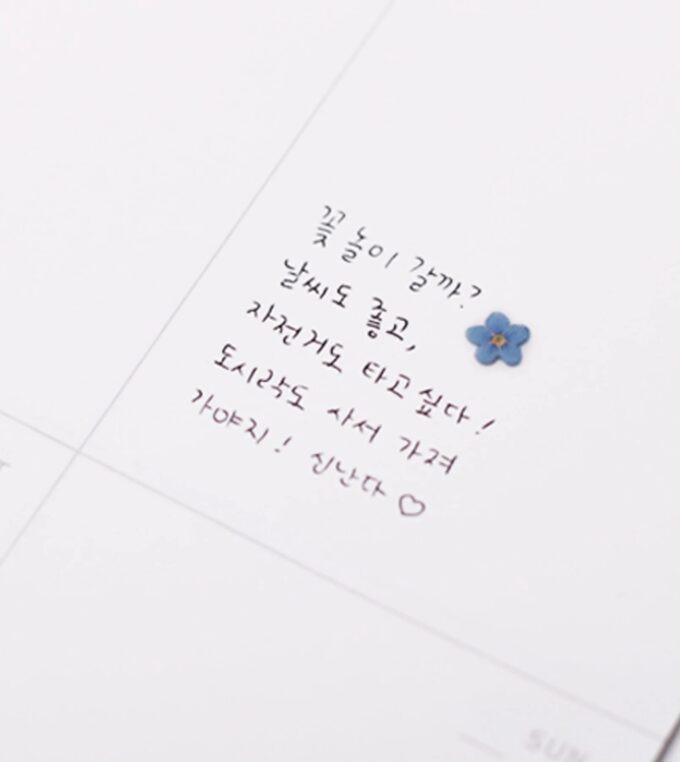 꽃놀이 갈까?
날씨도 좋고,
자전거도 타고싶다!
도시락도 사서 가져
가야지! 신난다♡
SUN